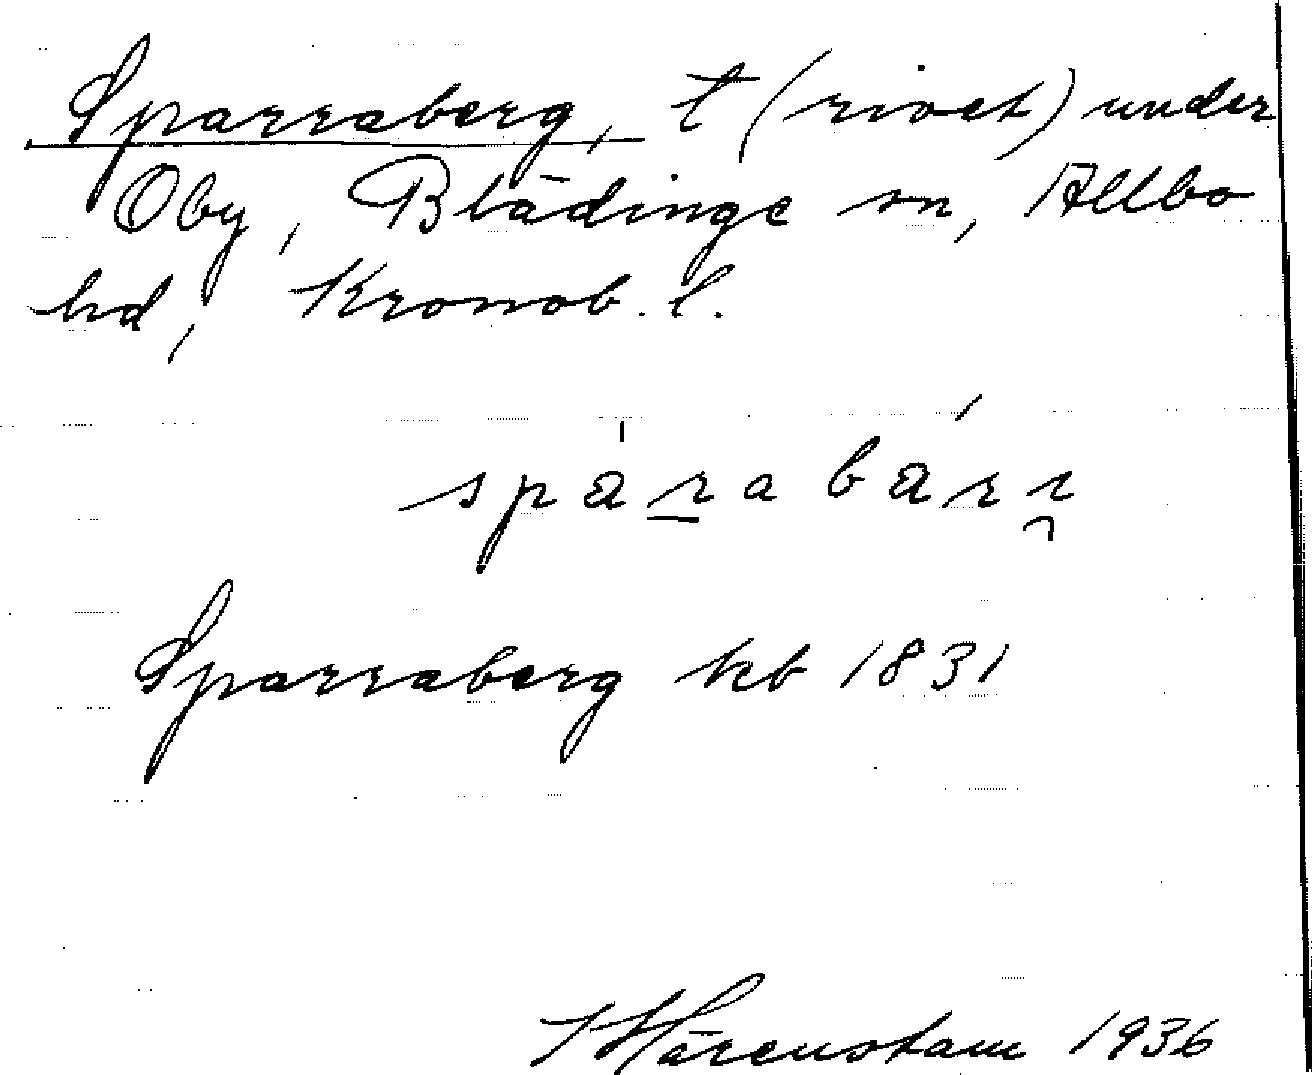 Sparraberg, t (rivet) under
Oby, Blädinge sn, Allbo
hd, Kronob. l.
sparabarɪ
Sparraberg kb 1831
Härenstam 1936